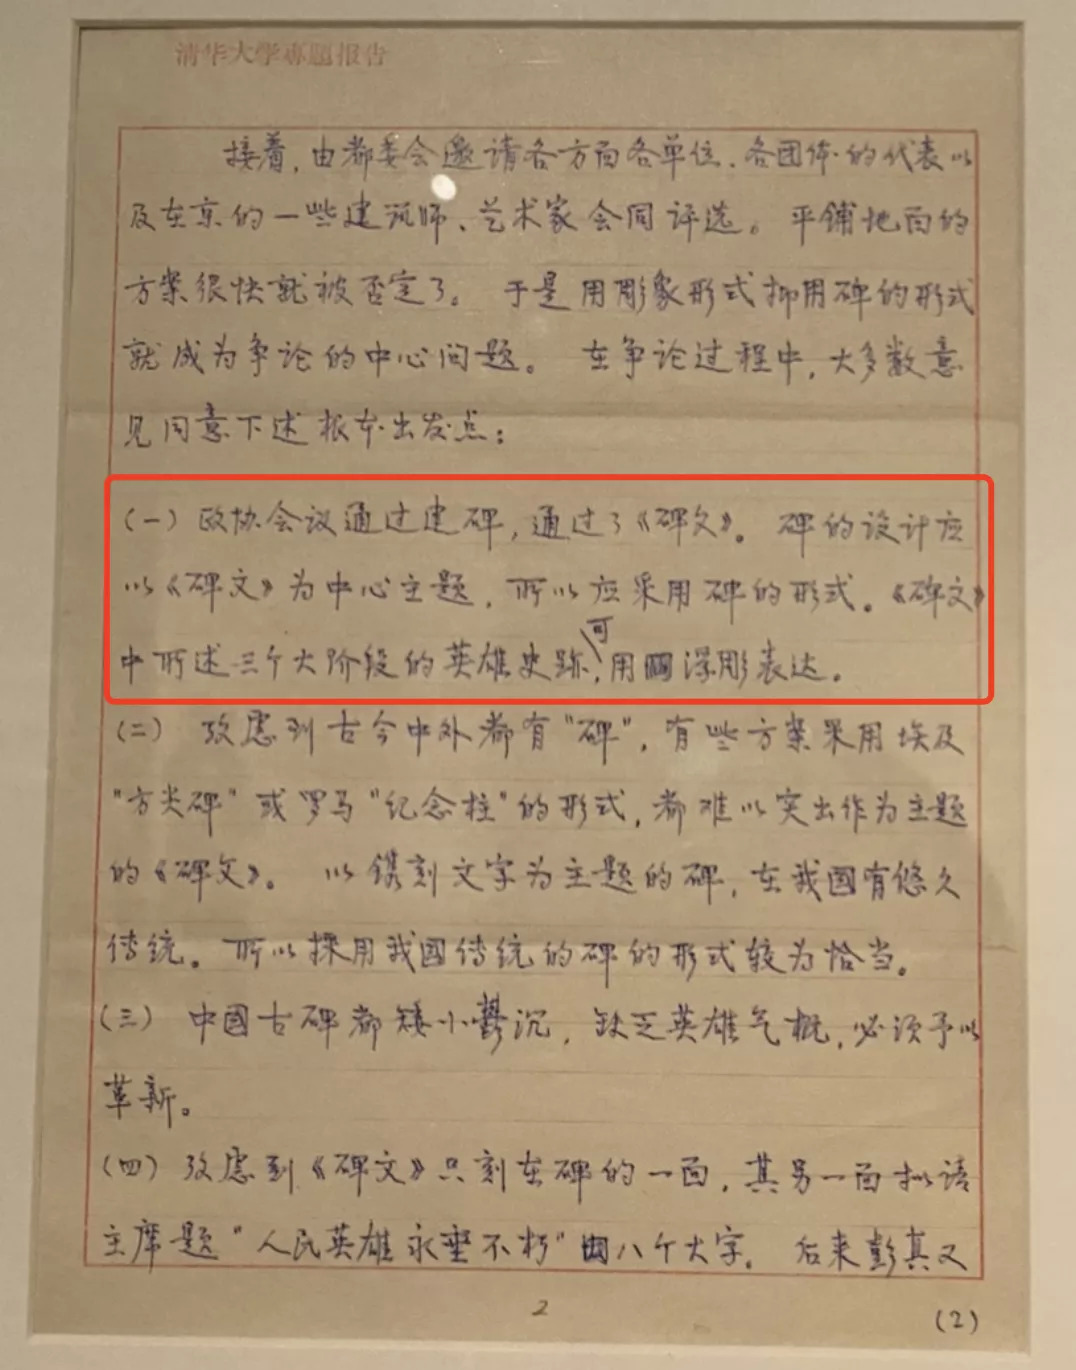 清华大学专题报告
接着，由都委会邀请各方面各单位、各团体的代表以
及在京的一些建筑师、艺术家会同评选。平铺地面的
方案很快就被否定了。于是用彫象形式抑用碑的形式
就成为争论的中心问题。在争论过程中，大多数意
见同意下述根本出发点：
（一）政协会议通过建碑，通过了《碑文》。碑的设计应
以《碑文》为中心主题，所以应采用碑的形式。《碑文》
中所述三个大阶段的英雄史跡，可用浮彫表达。
（二）攷虑到古今中外都有"碑"，有些方案采用埃及
"方尖碑"或罗马"纪念柱"的形式，都难以突出作为主题
的《碑文》。以镌刻文字为主题的碑，在我國有悠久
传统。所以採用我國传统的碑的形式较为恰当。
（三）中國古碑都矮小鬱沉，缺乏英雄气概，必须予以
革新。
（四）攷虑到《碑文》只刻在碑的一面，其另一面拟请
主席题"人民英雄永垂不朽"八个大字。后来彭真又
2
（2）